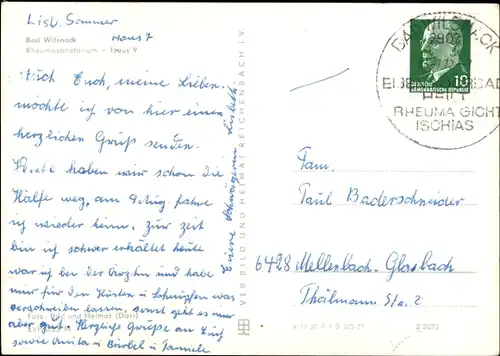 Lisb. Sommer
Haus 7
Bad Wilsnack
Rheumasanatorium – Haus V
Auch Euch, meine Lieben
möchte ich von hier einen
herzlichen Gruß senden.
Heute haben wir schon die
Hälfte weg, am 9. Aug. fahre
ich wieder heim. Zur Zeit
bin ich schwer erkältet heute
war ich bei der Ärztin und habe
mir für den Husten u. Schnupfen was
verschreiben lassen, sonst geht es mir
aber gut. Herzliche Grüße an Euch
sowie Anita u. Bärbel u. Familie
Eure Schwägerin Lisbeth
Foto: Bild und Heimat (Darr)
VEB BILD UND HEIMAT REICHENBACH I. V.
BAD WILSNACK
2903
EISENMOORBAD
HEILT
RHEUMA GICHT
ISCHIAS
10
DEUTSCHE
DEMOKRATISCHE REPUBLIK
Fam.
Paul Baderschneider
6428 Mellenbach-Glasbach
Thälmann Str. 2
2 2073